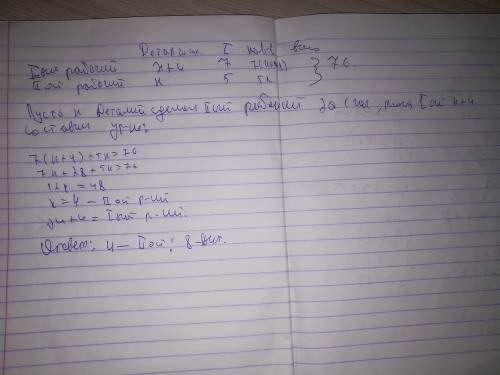 Деталичас t колв всего
Iый рабочий x+4 7 7(x+4) } 76
IIой рабочий x 5 5x
Пусть x деталей сделал IIой рабочий за 1 час, тогда Iый x+4
составим ур-ние:
7(x+4)+5x=76
7x+28+5x=76
12x=48
x=4 – IIой р-ий
x+4= Iый р-ий.
Ответ: 4 – IIой; 8